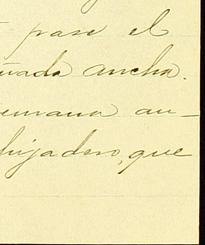 pase el
ñada ancha.
emana an-
hijadero, que